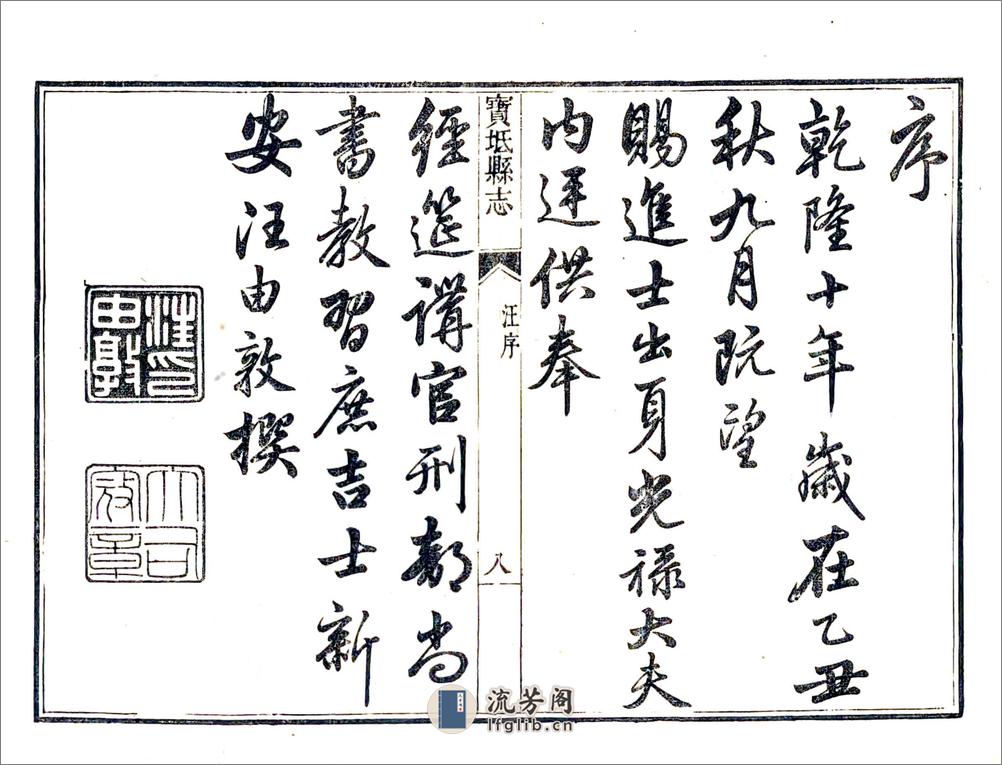 序
乾隆十年歲在乙丑
秋九月既望
賜進士出身光禄大夫
内廷供奉
寶坻縣志
汪序
八
經筵講官刑部尚
書教習庶吉士新
安汪由敦撰
汪印由敦
大司寇章
流芳阁
lfglib.cn